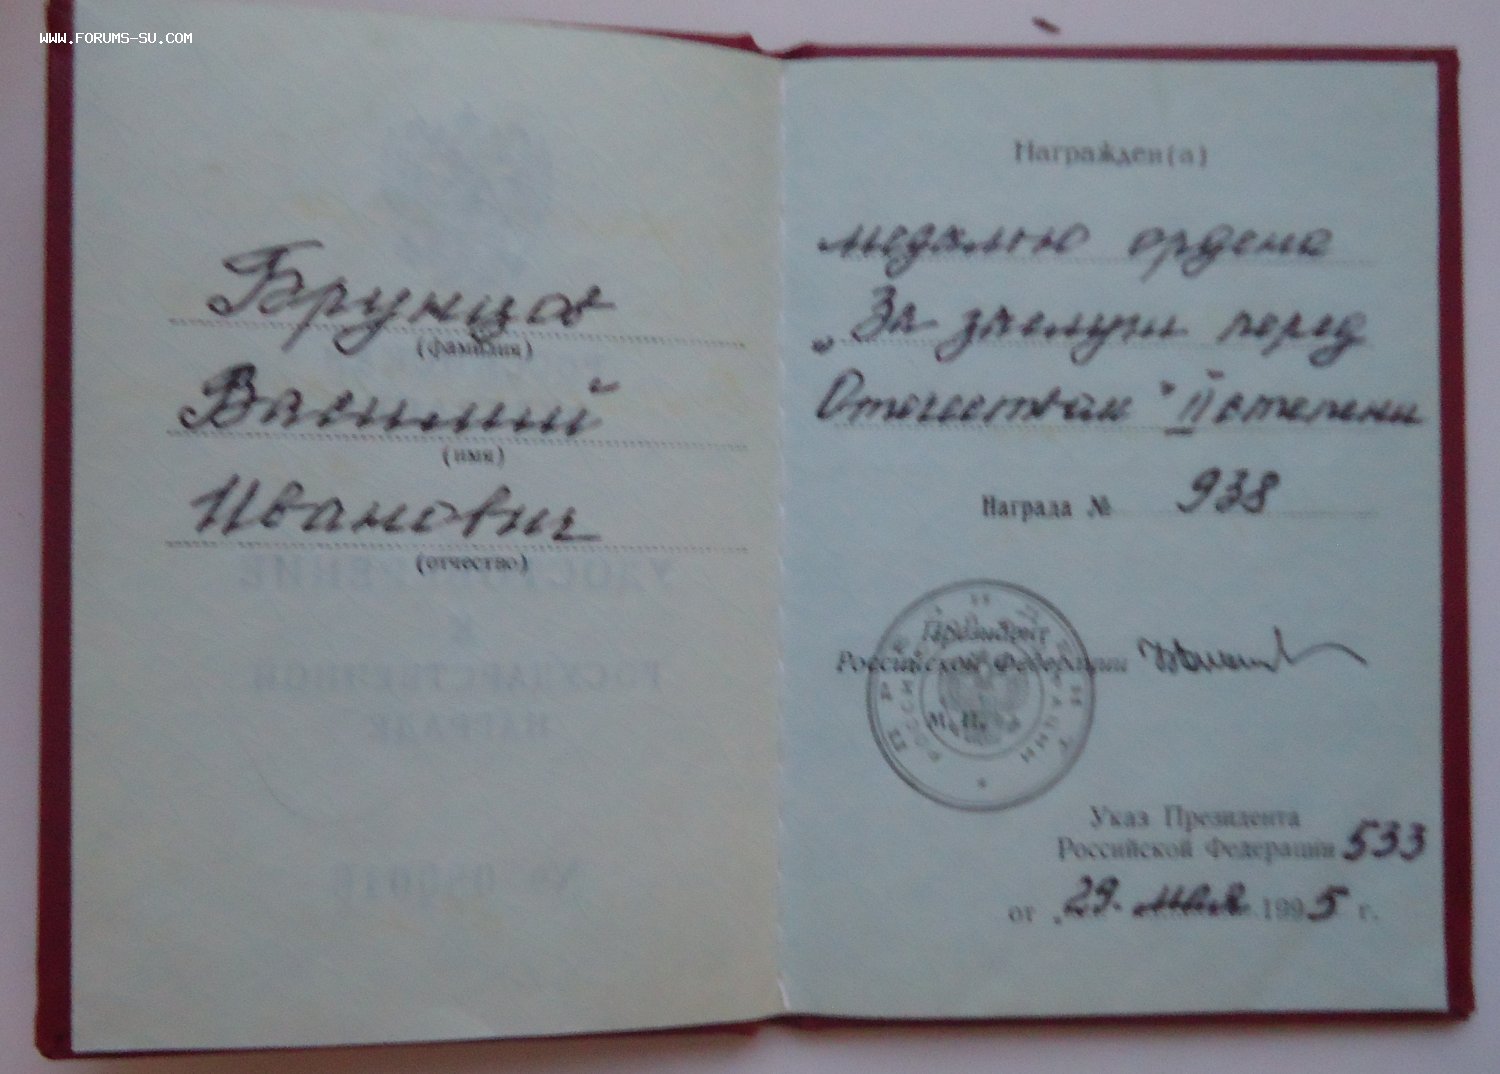 WWW.FORUMS-SU.COM
Брунцов
(фамилия)
Василий
(имя)
Иванович
(отчество)
Награжден(а)
медалью ордена
„За заслуги перед
Отечеством" II степени
Награда № 938
Президент
Российской Федерации
М. П.
Указ Президента
Российской Федерации 533
от „29. мая 1995 г.